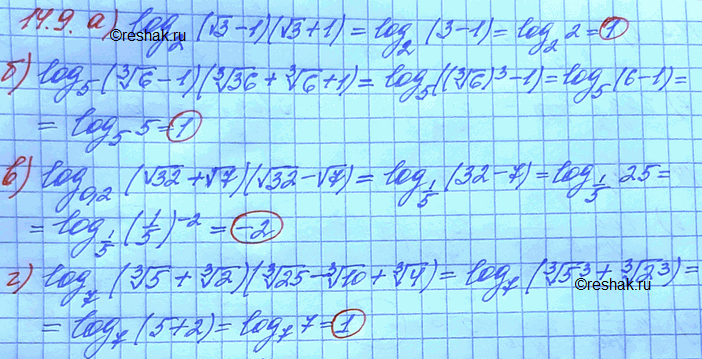 14.9. а) log₂ (√3-1)(√3+1) = log₂ (3-1) = log₂ 2 = 1
©reshak.ru
б) log₅ (∛6-1)(∛36+∛6+1) = log₅((∛6)³-1) = log₅(6-1) =
= log₅ 5 = 1
в) log₀,₂ (√32+√7)(√32-√7) = log_{1/5} (32-7) = log_{1/5} 25 =
= log_{1/5} (1/5)⁻² = -2
г) log₇ (∛5+∛2)(∛25-∛10+∛4) = log₇ (∛5³+∛2³) =
©reshak.ru
= log₇ (5+2) = log₇ 7 = 1